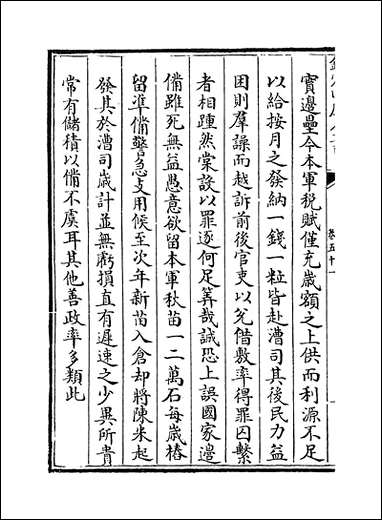 實邊壘今本軍税賦僅充歳額之上供而利源不足
以給按月之發納一錢一粒皆赴漕司其後民力益
困則羣譟而越訴前後官吏以兊借敷率得罪囚繫
者相踵然棠設以罪逐何足筭哉誠恐上誤國家邉
備雖死無益愚意欲留本軍秋苗一二萬石每歳樁
留凖備警急支用候至次年新苗入倉却將陳米起
發其於漕司歳計並無虧損直有遲速之少異所貴
常有儲積以備不虞耳其他善政率多類此
卷五十一